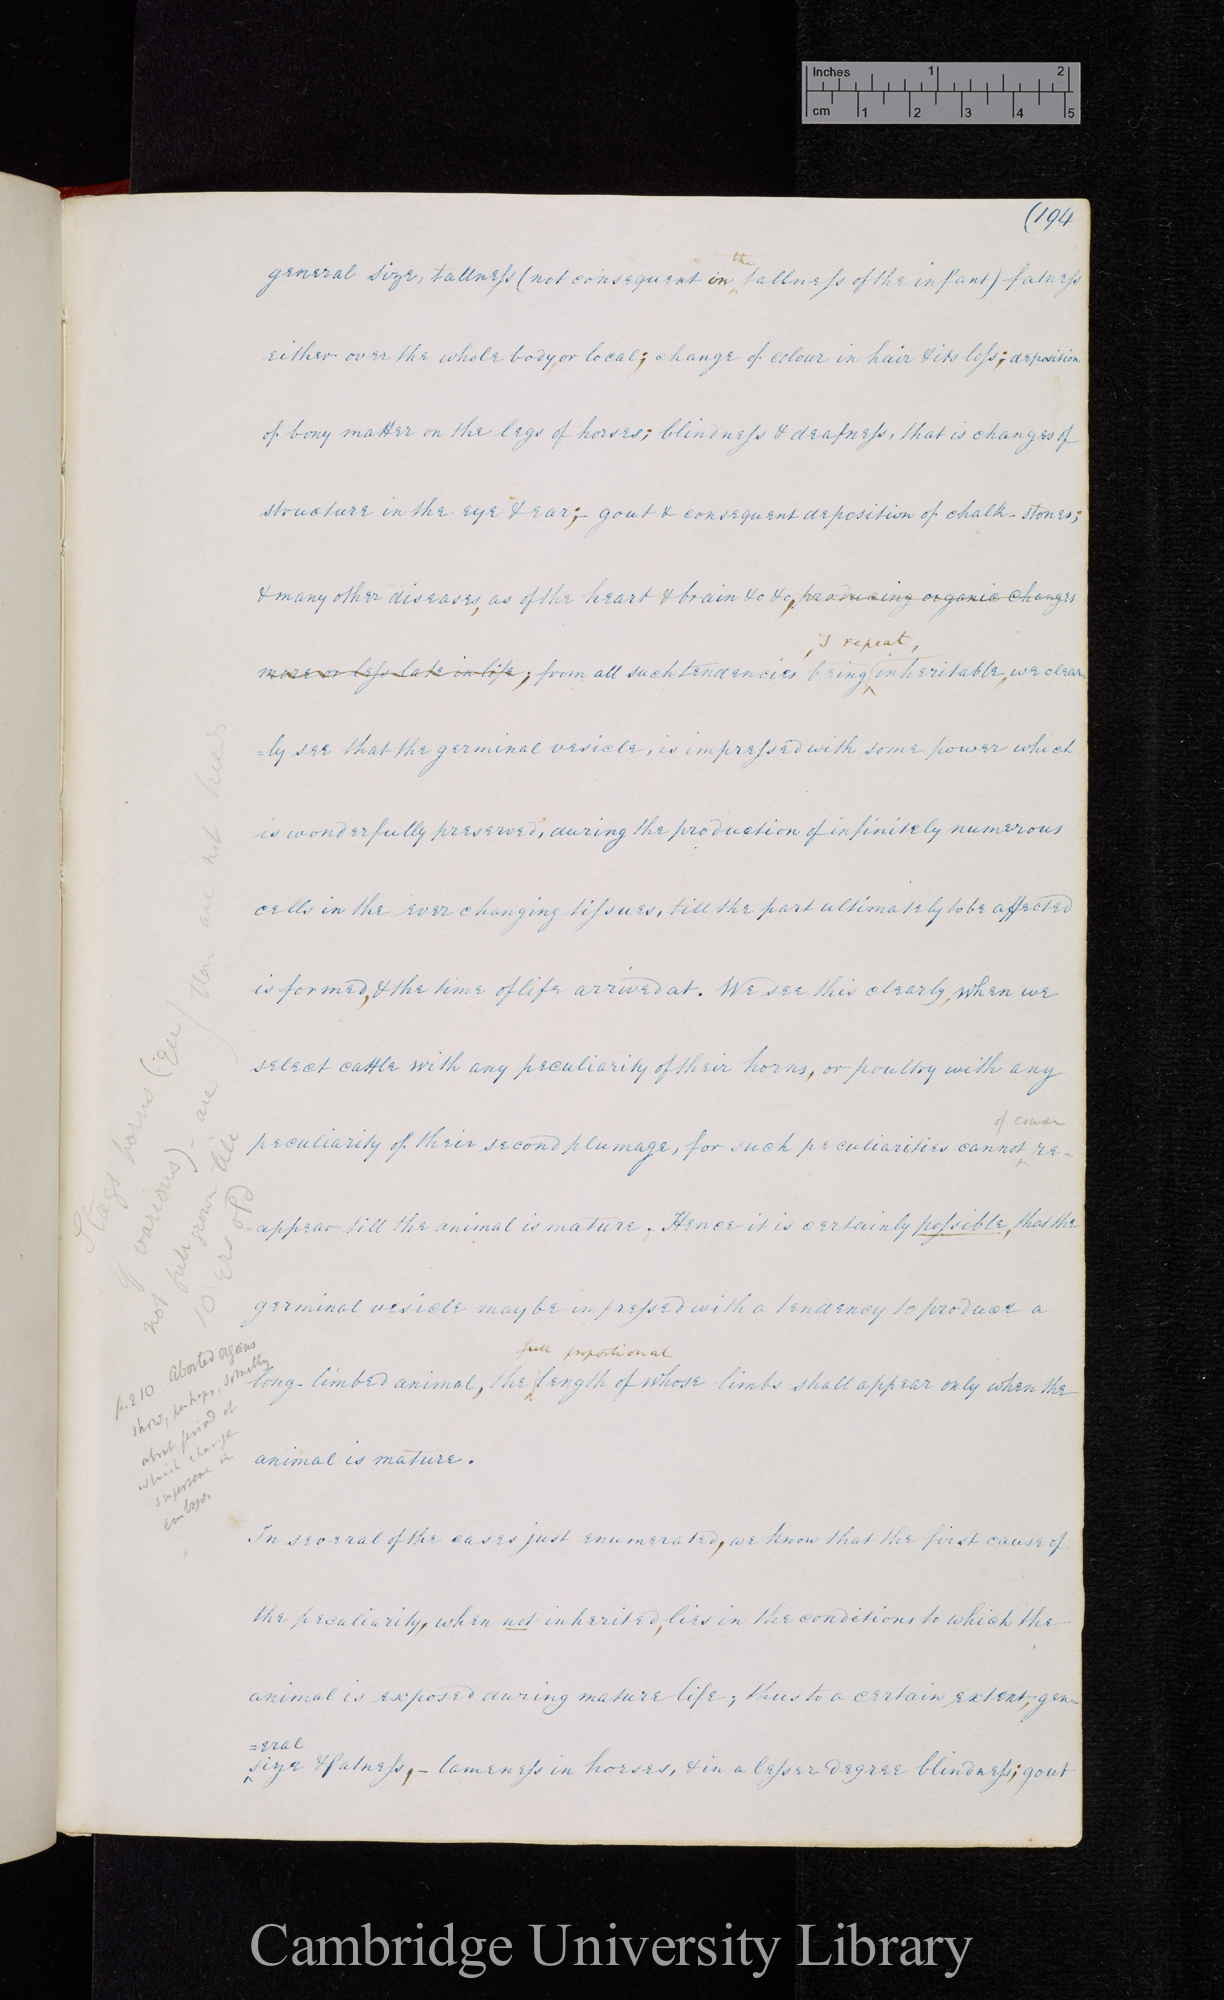 Inches 1 2
cm 1 2 3 4 5
(194
general size, tallness (not consequent in the tallness of the infant) fatness
either over the whole body, or local; change of colour in hair & its loss; deposition
of bony matter on the legs of horses; blindness & deafness, that is changes of
structure in the eye & ear; – gout & consequent deposition of chalk-stones;
& many other diseases, as of the heart & brain &c &c, producing organic changes
more or less late in life; from all such tendencies being, I repeat, inheritable, we clear-
=ly see that the germinal vesicle, is impressed with some power which
is wonderfully preserved, during the production of infinitely numerous
cells in the ever changing tissues, till the part ultimately to be affected
is formed, & the time of life arrived at. We see this clearly, when we
select cattle with any peculiarity of their horns, or poultry with any
peculiarity of their second plumage, for such peculiarities cannot of course re-
=appear till the animal is mature. Hence it is certainly possible, that the
germinal vesicle may be impressed with a tendency to produce a
long-limbed animal, the full proportional length of whose limbs shall appear only when the
animal is mature.
In several of the cases just enumerated, we know that the first cause of
the peculiarity, when not inherited, lies in the conditions to which the
animal is exposed during mature life; thus to a certain extent, gen-
=eral
size & fatness, – lameness in horses, & in a lesser degree blindness; gout
Stags horns
of various) – are
not full grown till
10 yrs old
are not
p. 210 Aborted organs
show, perhaps, something
about period at
which change
supervene in
embryo.
Cambridge University Library